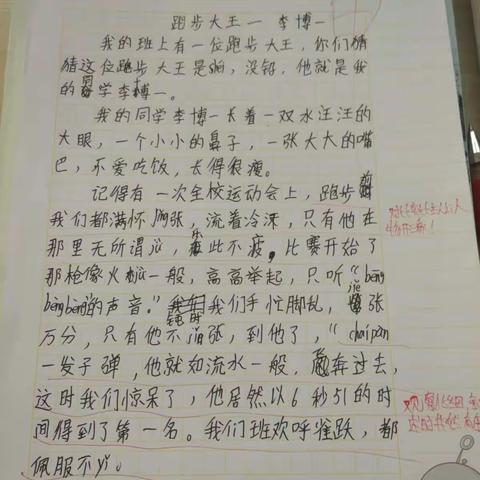 跑步大王一李博一
我的班上有一位跑步大王,你们猜
猜这位跑步大王是shui,没错,他就是我
的同学李博一。
我的同学李博一长着一双水汪汪的
大眼,一个小小的鼻子,一张大大的嘴
巴,不爱吃饭,长得很瘦。
记得有一次全校运动会上,跑步前
我们都满怀jǐn张,流着冷汗,只有他在
那里无所谓jù,乐此不疲。比赛开始了
那枪像火jù一般,高高举起,只听“bēng
bēngbēng的声音。”我们手忙脚乱,张
万分,只有他不jǐn张,到他了,“chaipan
一发子弹,他就如流水一般,奔过去,
这时我们惊呆了,他居然以6秒51的时
间得到了第一名。我们班欢呼雀跃,都
佩服不yǐ。